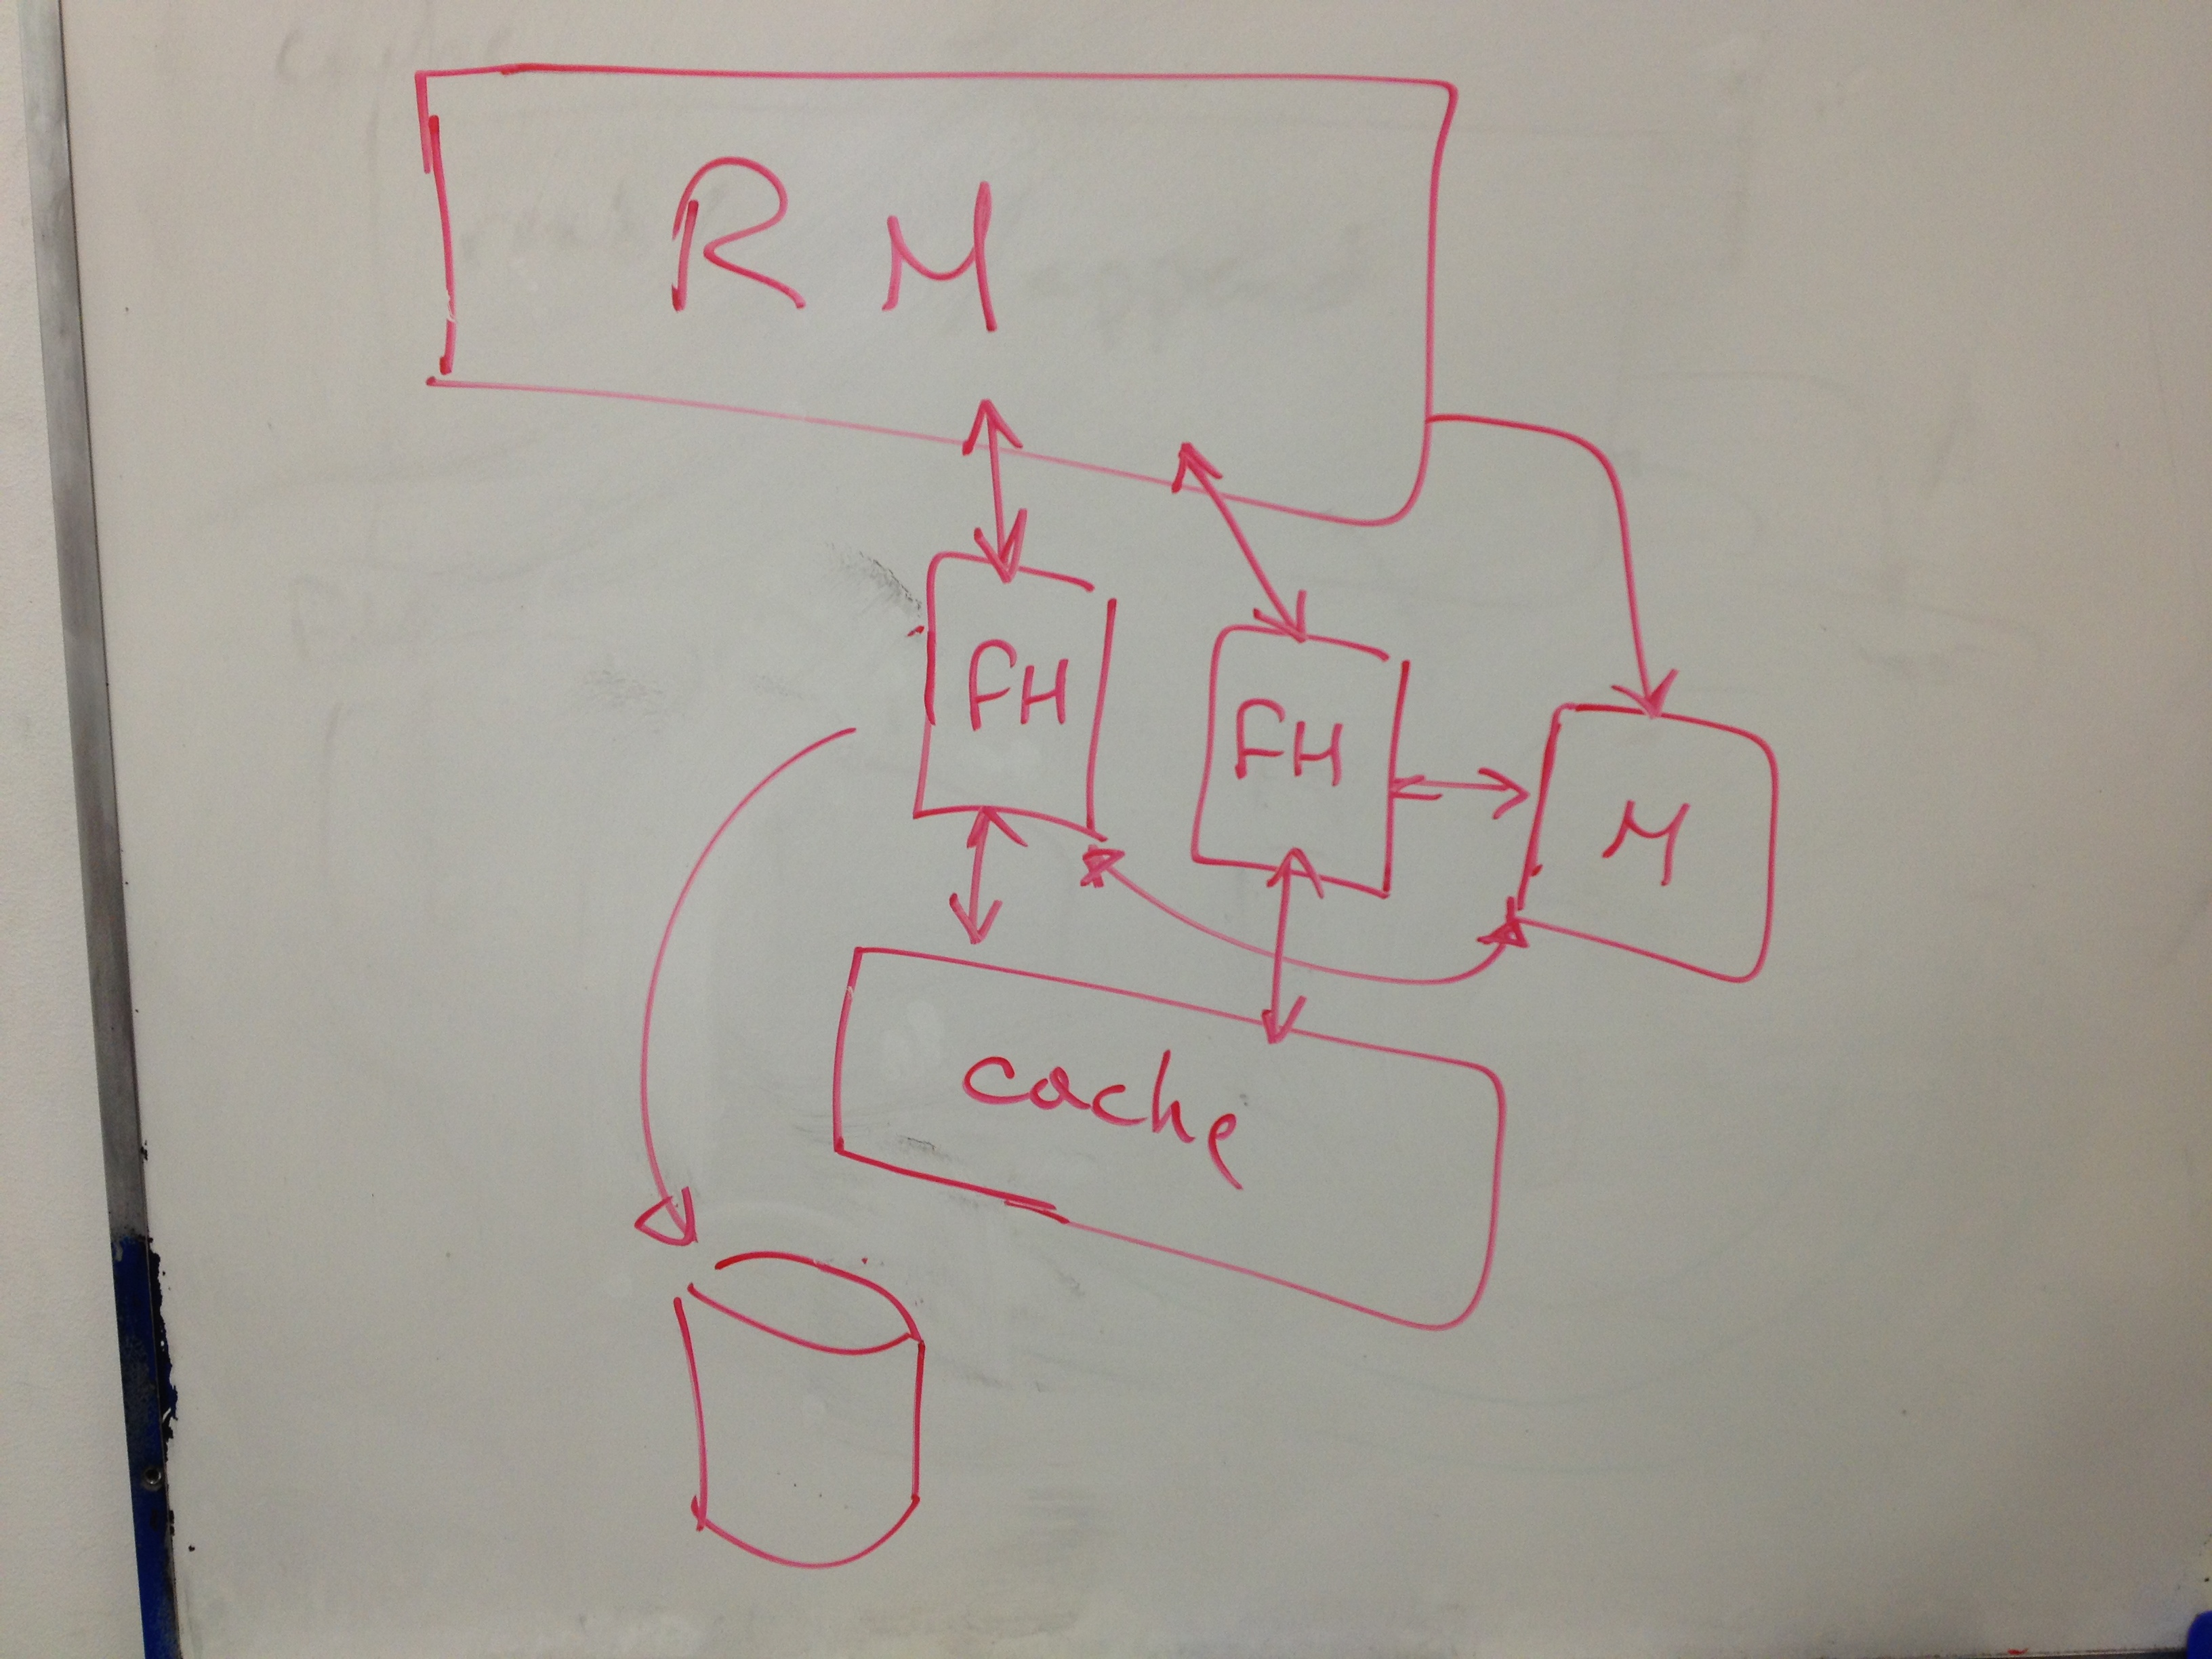 RM
FH
FH
M
cache